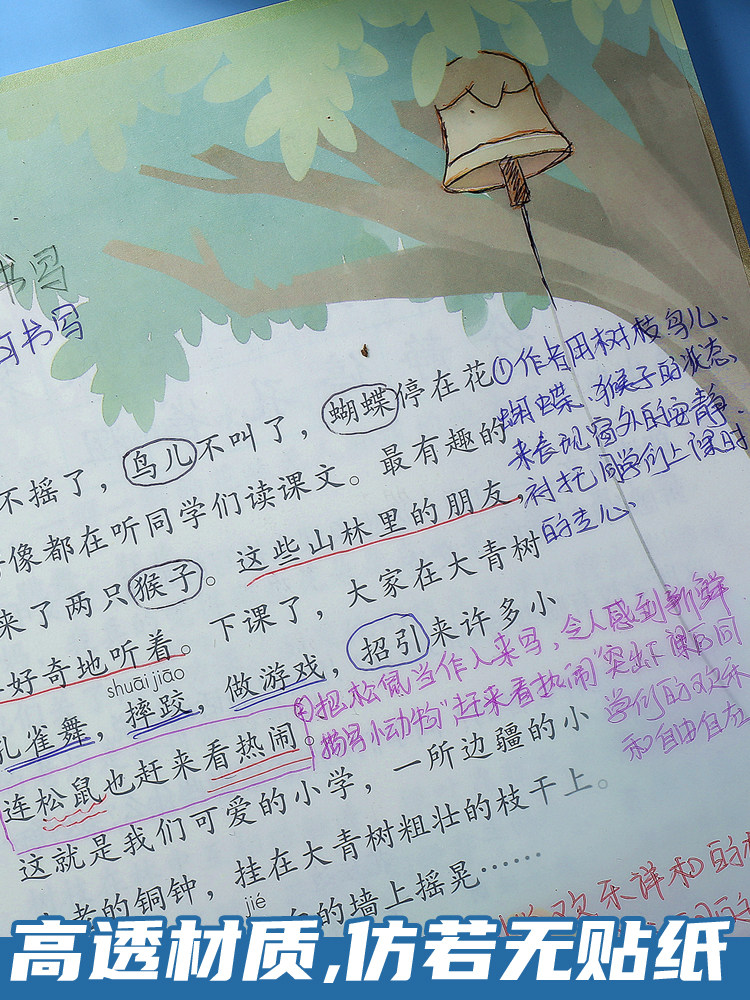 书写
书写
不摇了，鸟儿不叫了，蝴蝶停在花
像都在听同学们读课文。最有趣的
来了两只猴子。这些山林里的朋友，
好奇地听着。下课了，大家在大青树
shuāi jiāo
孔雀舞，摔跤，做游戏，招引来许多小
连松鼠也赶来看热闹。
这就是我们可爱的小学，一所边疆的小
老的铜钟，挂在大青树粗壮的枝干上。
jié
的墙上摇晃……
①作者用树枝鸟儿、
蝴蝶、猴子的状态，
来表现窗外的安静，
衬托同学们上课时
的专心、
把松鼠当作人来写，令人感到新鲜
描写小动物“赶来看热闹”突出下课时同
学们的欢乐
和自由自
欢乐祥和的
高透材质,仿若无贴纸